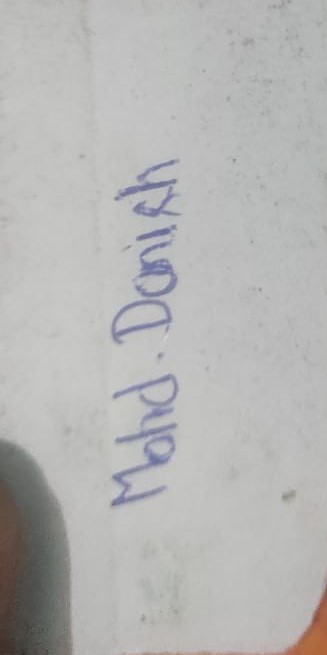 Mohd. Danish